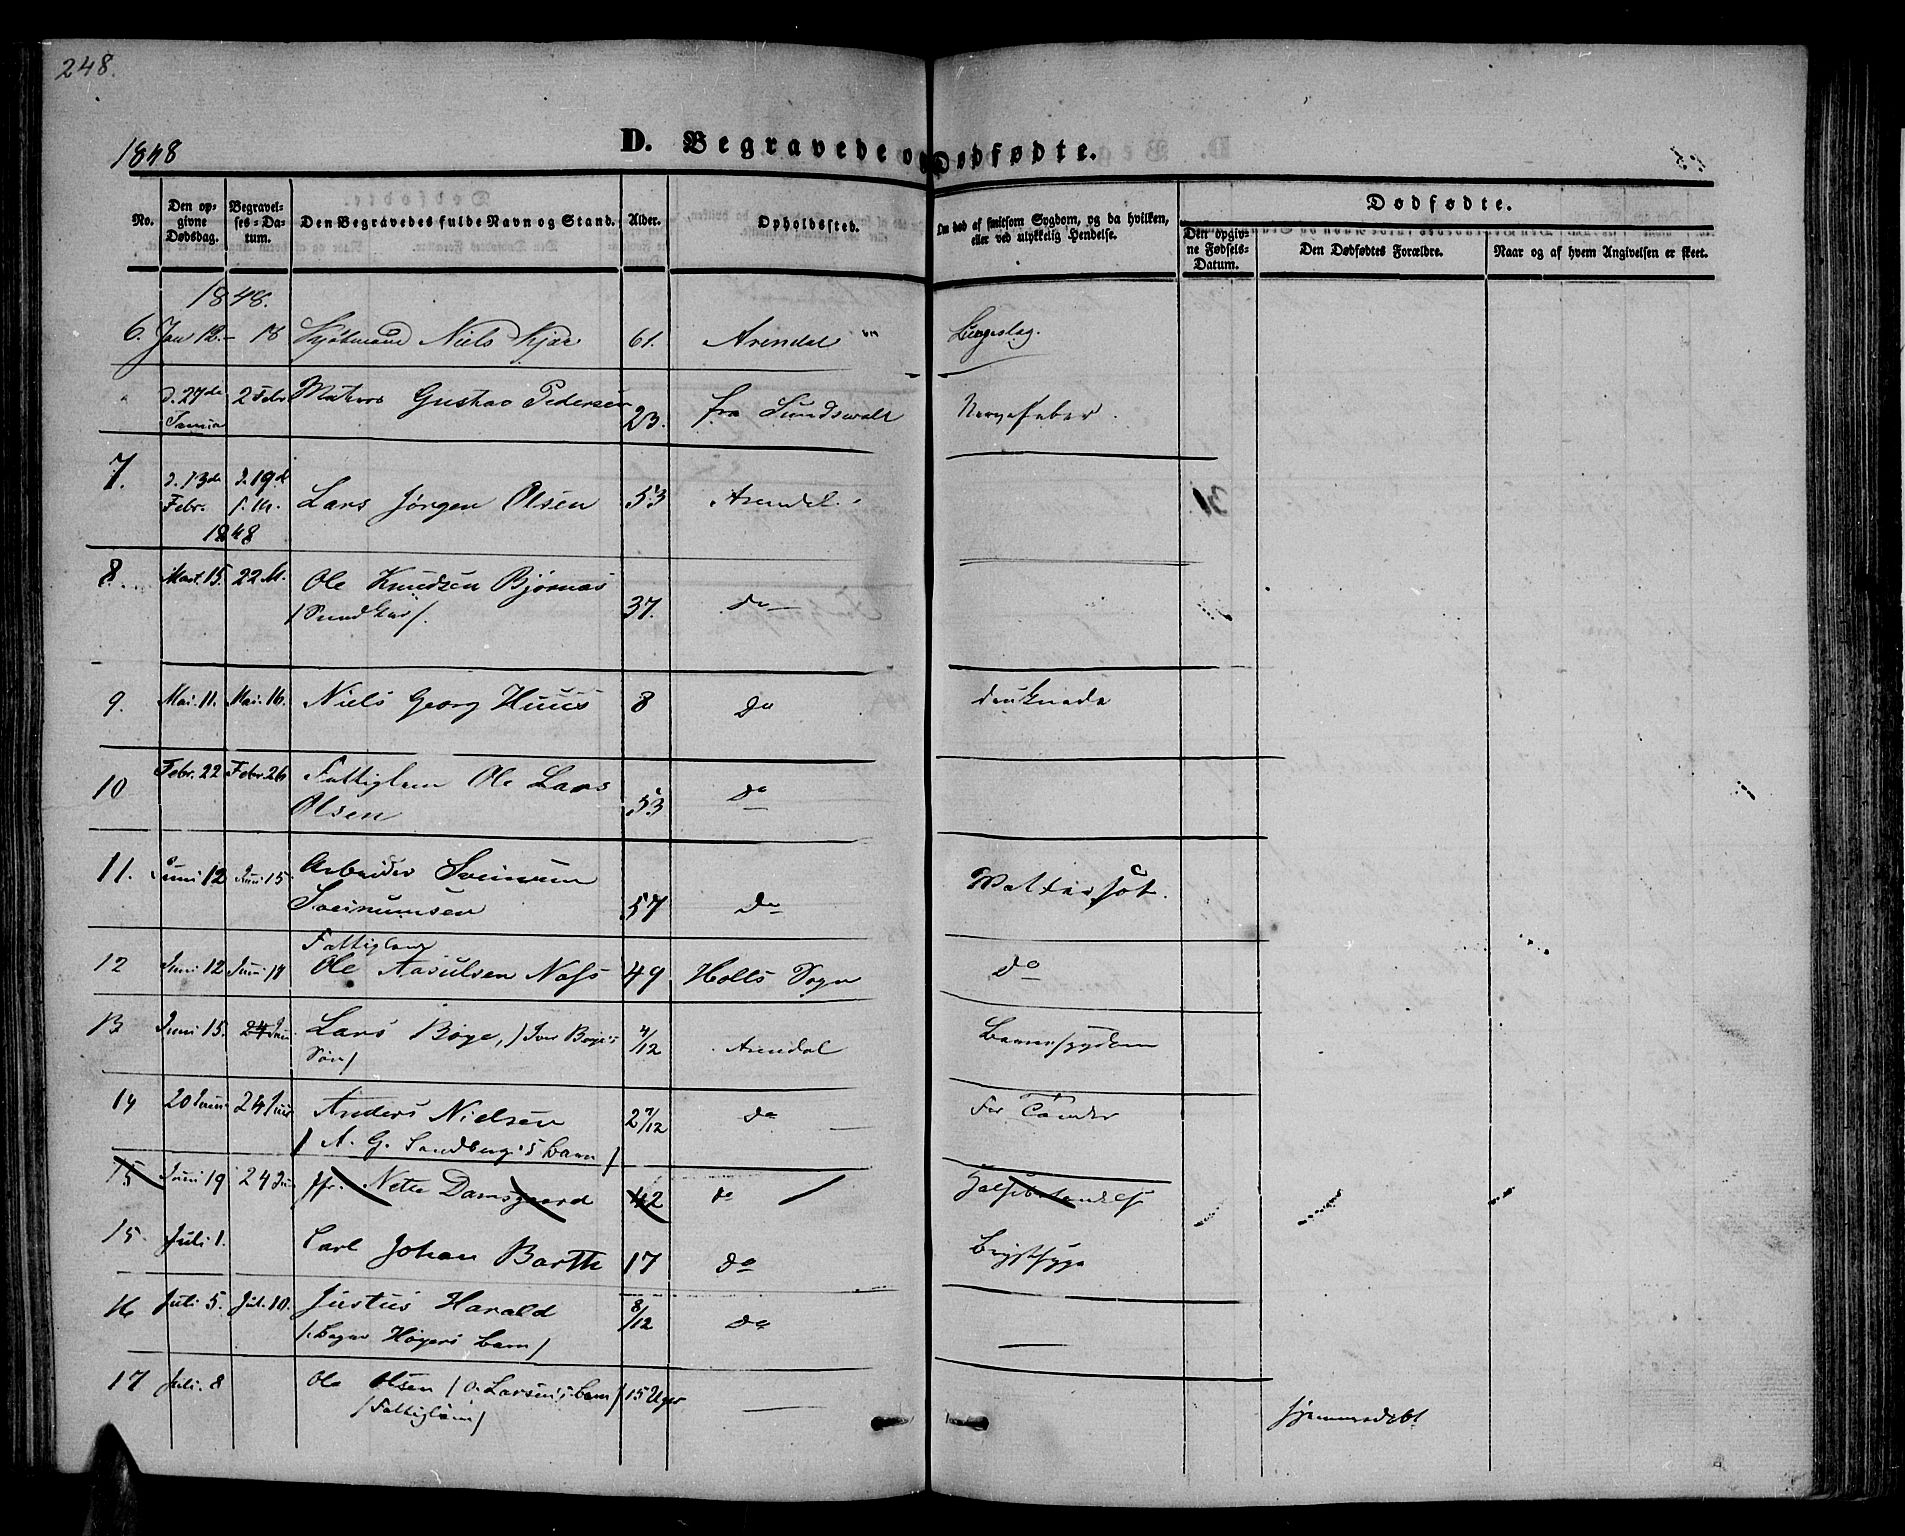 248.
1848
D. Begravede og Dødfødte.
No. Den opgivne Dødsdag. Begravelses-Datum. Den Begravedes fulde Navn og Stand. Alder. Opholdssted. Om død af smitsom Sygdom, og da hvilken, eller ved ulykkelig Hendelse. Dødfødte.
Den opgivne Fødsels-Datum. Den Dødfødtes Forældre. Naar og af hvem Angivelsen er skeet.
1848.
6. Jan 12. - 18 Niels Kjær 61. Arendal
d. 27de Januar 2 Febr Matros Gustav Pedersen 23. fra Sundswalt
7. d. 13de Febr. d. 19de Lars Jørgen Olsen 53 Arendal.
1848
8. Mart. 15. 22 M. Ole Knudsen Bjørnaas 37. do
9. Mai. 11. Mai. 16. Niels Georg Huus 8 do druknede
10 Febr. 22 Febr. 26 Fattiglem Ole Lars
Olsen 53 do
11. Juni 12 Juni 15 Arbeider
57 do Vattersot.
12 Juni 12 Juni 17 Fattiglem
Ole Aasulsen Næs 49 Holts Sogn do
13 Juni 15. 24 Juni Lars Bøye, / Iver Bøye's
Søn / 4/12 Arendal Barnesygdom
14 20 Juni 24 Juni Anders Nielsen 2 7/12 do For Tænder
/ A. G. Sandberg's barn /
15 Juni 19 24 Ju Jfr. Nette Damsgaard 42 do
15. Juli 1. Carl Johan Barth 17 do Brystsyge
16 Juli 5. Jul. 10. Justus Harald 8/12 do
Høyers barn /
17 Juli. 8 Ole Olsen / O. Larsen's barn / 15 Uger
/ Fattiglem / hjemmedøbt